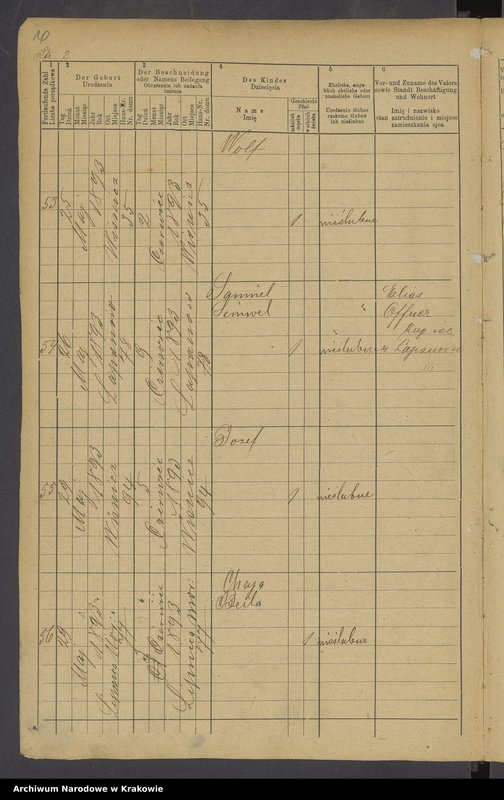 10
Str. 2
1
Fortlaufende Zahl
Liczba porządkowa
2
Der Geburt
Urodzenia
Tag
Dzień
Monat
Miesiąc
Jahr
Rok
Ort
Miejsce
Haus-Nr.
Nr. domu
3
Der Beschneidung
oder Namens Beilegung
Obrzezania lub nadania
imienia
Tag
Dzień
Monat
Miesiąc
Jahr
Rok
Ort
Miejsce
Haus-Nr.
Nr. domu
4
Des Kindes
Dziecięcia
Name
Imię
Geschlecht
Płeć
männlich
męska
weiblich
żeńska
5
Eheliche, ange-
blich eheliche oder
uneheliche Geburt
Urodzenie ślubne
rzekomo ślubne
lub nieślubne
6
Vor- und Zuname des Vaters
sowie Stand, Beschäftigung
und Wohnort
Imię i nazwisko
stan zatrudnienie i miejsce
zamieszkania ojca
53
25
Maj
1893
Wiśnicz
35
2
Czerwiec
1893
Wiśnicz
35
Wolf
1
nieślubne
54
26
Maj
1893
Łapanów
78
Czerwiec
1893
Łapanów
78
Samuel
Seinwel
1
nieślubne
Elias
Offner
w Łapanowie
55
29
Maj
1893
Wiśnicz
94
5
Czerwiec
1893
Wiśnicz
94
Josef
1
nieślubne
56
29
Maj
1893
Czerwiec
1893
Chaja
Beila
1
nieślubne
Archiwum Narodowe w Krakowie